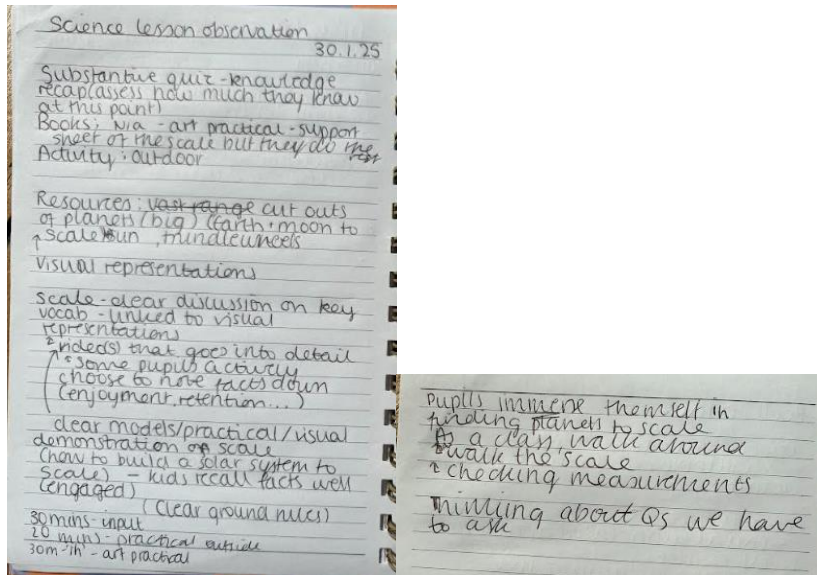 Science lesson observation
30.1.25
Substantive quiz - knowledge
recap (assess how much they know
at this point)
Books: N/a - art practical - support
sheet of the scale but they do the
rest
Activity : outdoor
Resources : vast range cut outs
of planets (big) (Earth + moon to
↑ scale sun , trundlewheels
Visual representations
scale - clear discussion on key
vocab - linked to visual
representations
video(s) that goes into detail
some pupils actively
choose to note facts down
(enjoyment, retention...)
clear models/practical/visual
demonstration of scale
(how to build a solar system to
scale) - kids recall facts well
(engaged)
(Clear ground rules)
30 mins - input
20 mins - practical outside
30 min - art practical
Pupils immerse themself in
finding planets to scale
a class walk around
walk the scale
checking measurements
Thinking about Qs we have
to ask